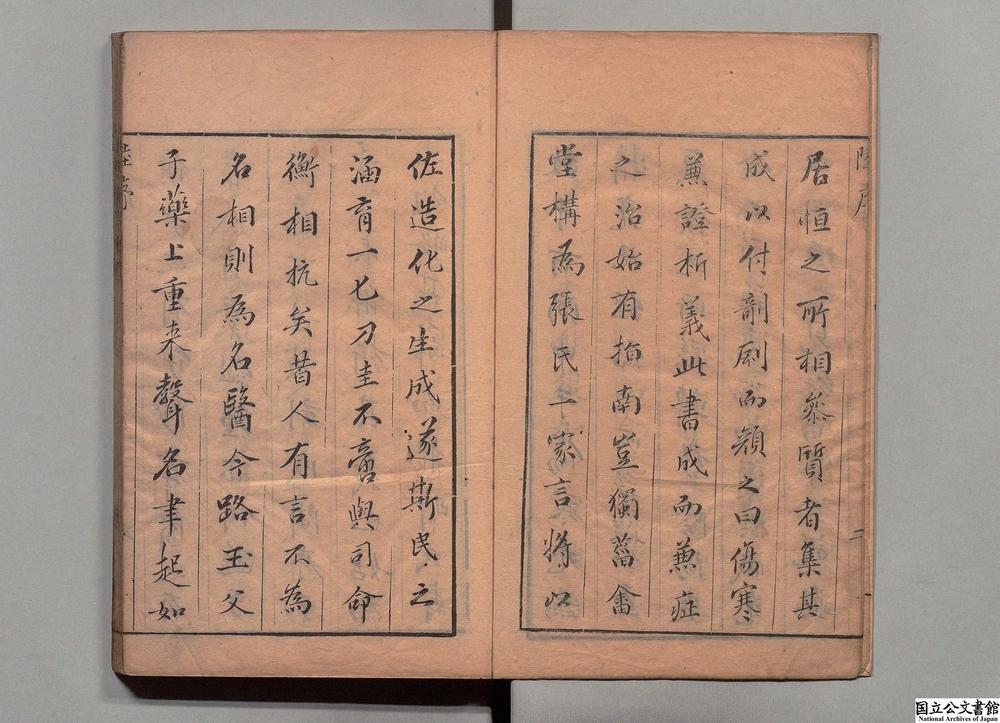 居恒之所相叅質者集其
成以付剞劂而顏之曰傷寒
兼證析義此書成而兼症
之治始有指南豈獨菑畬
堂構為張氏一家言將以
佐造化之生成遂斯民之
涵育一匕刀圭不啻與司命
衡相抗矣昔人有言不為
名相則為名醫今路玉父
子藥上重来聲名聿起如
国立公文書館
National Archives of Japan